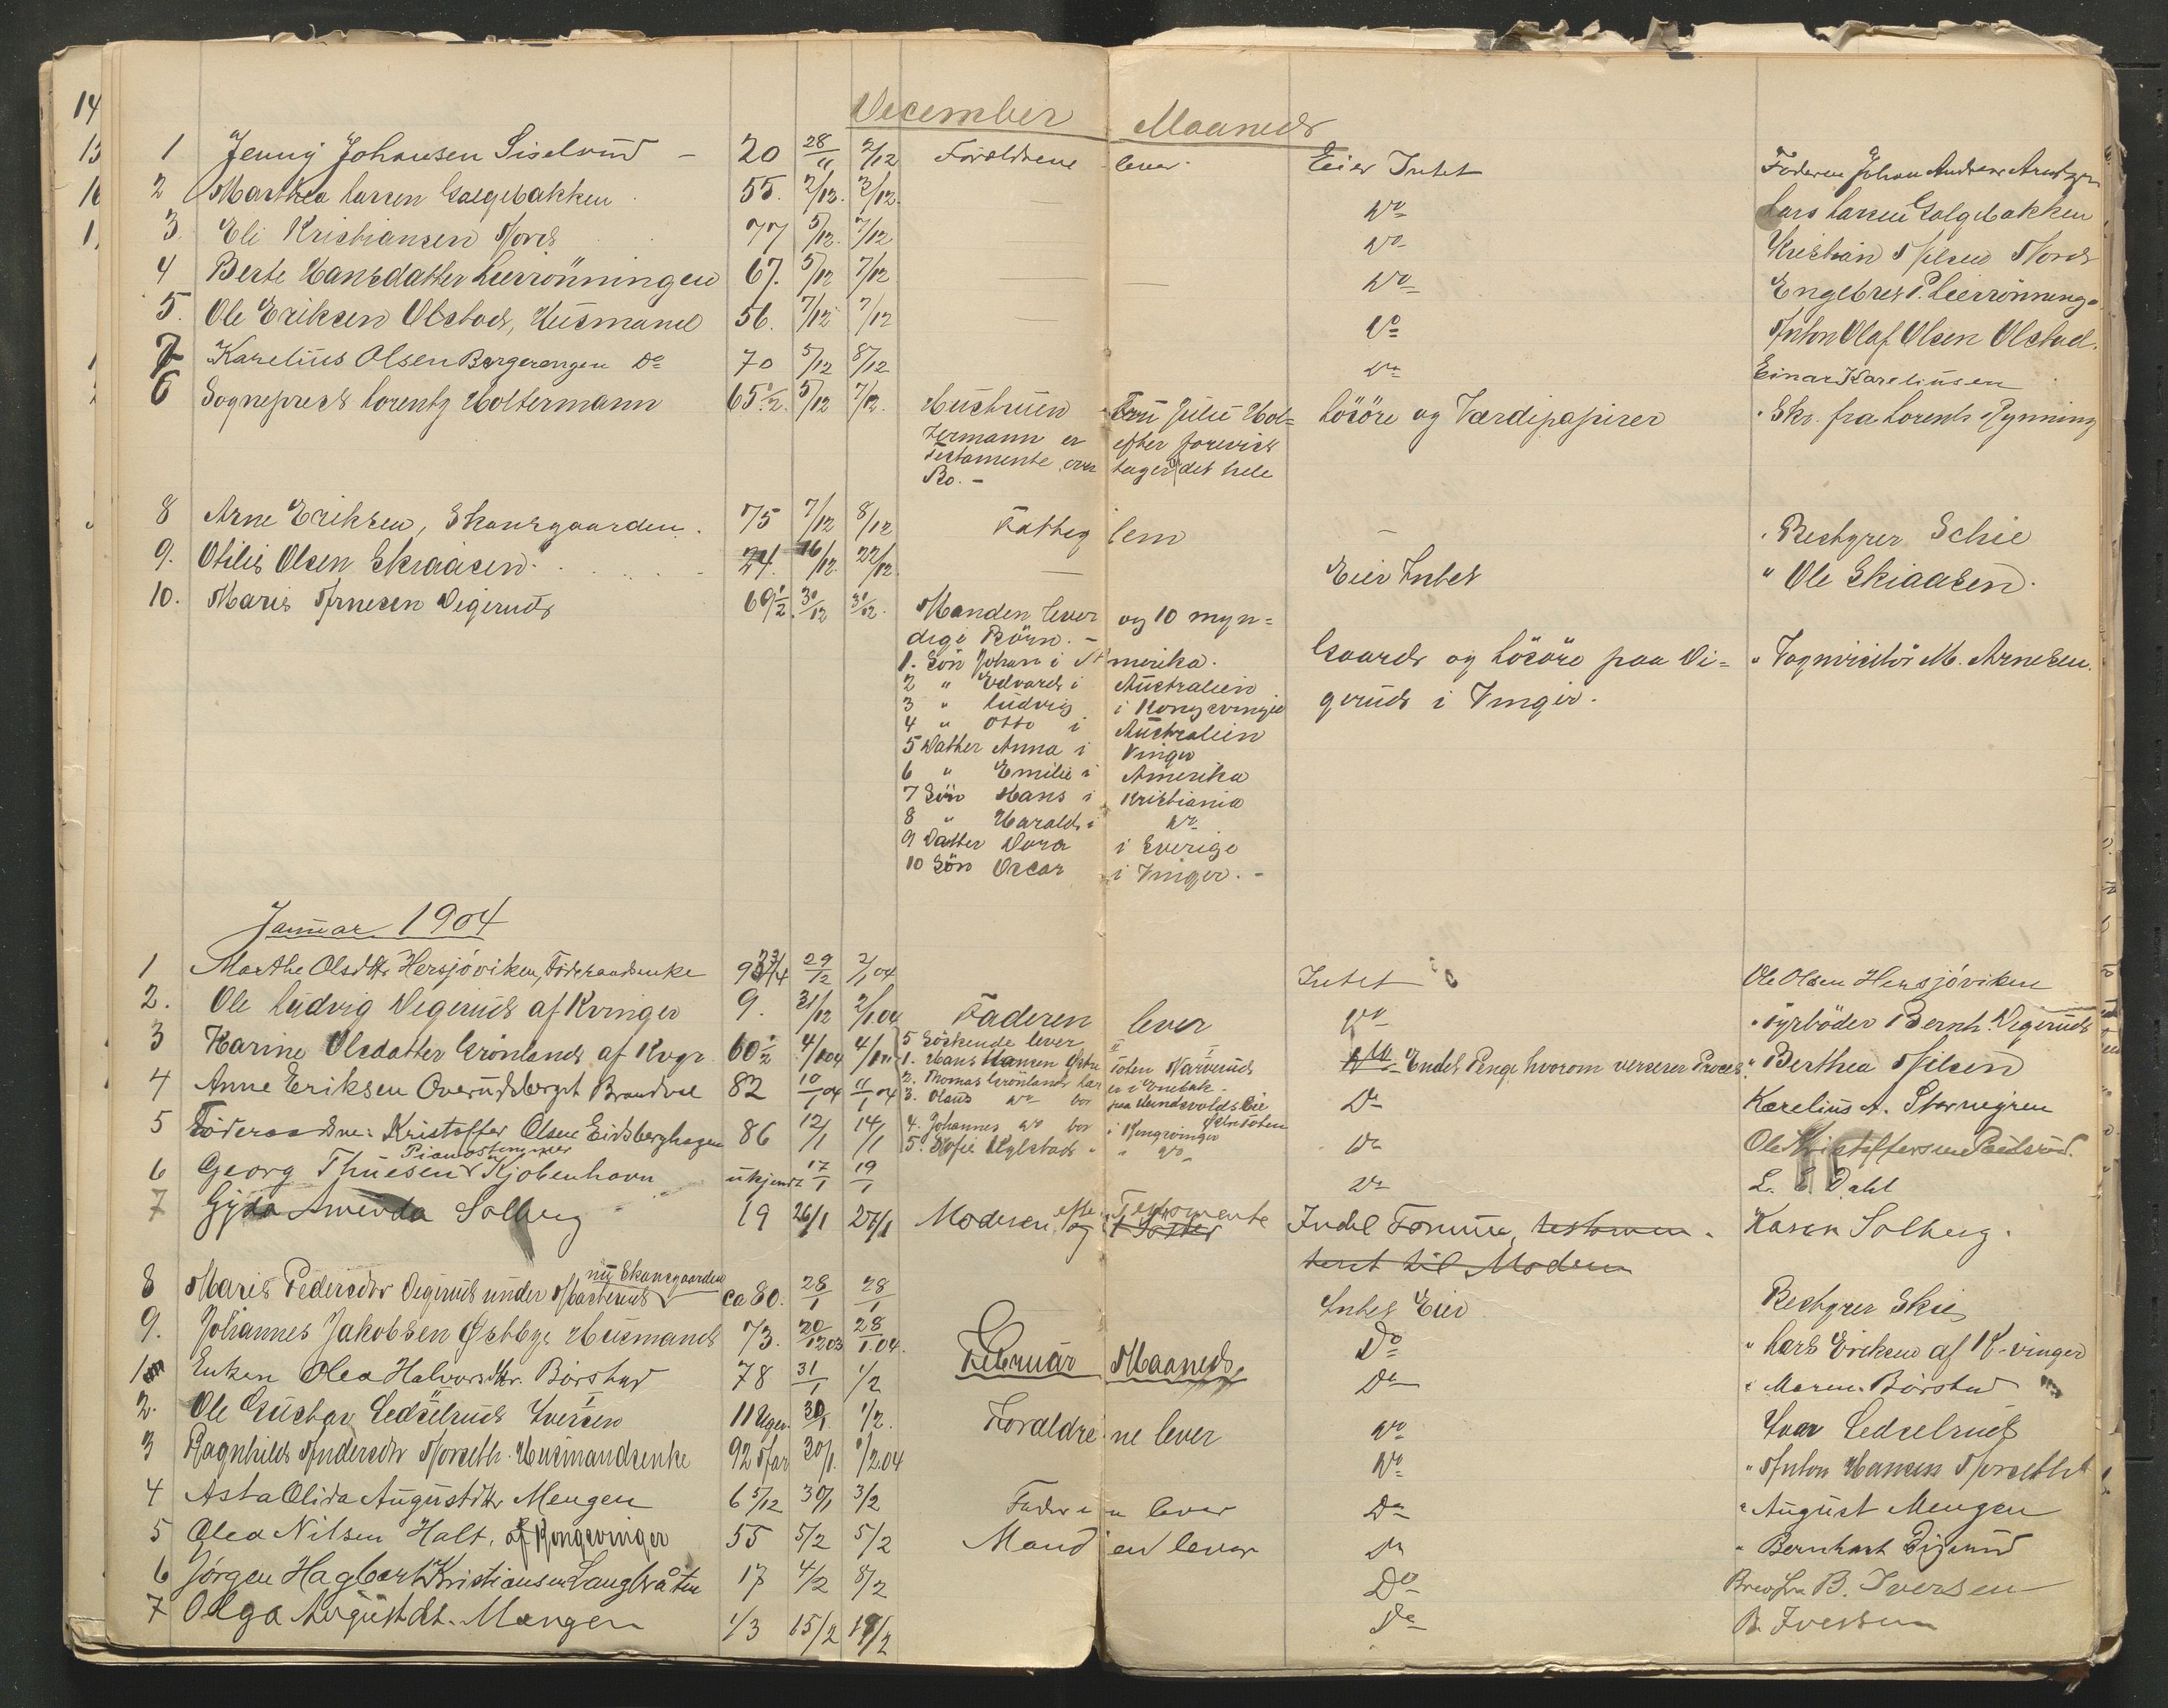 December Maaned
1 Jenny Johansen Siselrud – 20 28/11 2/12 Forældrene lever. Eier Intet Faderen Johan Andreas
2 Marthea Larsen Galgebakken 55. 2/12. 2/12. Do Lars Larsen Galgebakken
3. Eli Kristiansen Nord 77 5/12. 7/12 Do Kristian Nilsen Nord
4 Berte Hansdatter Lierrönningen 67. 5/12 7/12 — Do Engebret P. Lierrönning
5. Ole Eriksen Olstad, Husmand 56. 7/12 7/12 Do Anton Olaf Olsen Olstad.
7 Karelius Olsen Bergerengen Do 70 5/12 8/12 Do Einar Kareliusen
6 Sogneprest Lorentz Holtermann 65 1/2. 5/12 7/12. Hustruen Fru Julie Hol= Lösöre og Værdipapirer Skr. fra Lorentz Rynning
termann er efter forevist
Testamente over tager det hele
Bo. –
8 Arne Eriksen, Skansgaarden. 75 7/12 8/12 Fattig lem — Bestyrer Schie
9. Otilie Olsen Skiaasen. 24. 16/12. 22/12. — Eier Intet " Ole Skiaasen.
10. Marie Arnesen Vigerud 69 1/2. 30/12 31/12. Manden lever og 10 myn=
dige Börn. –
1. Sön Johan i Amerika. Gaard og Lösöre paa Vi= " Vognvisitör M. Arnesen.
2 " Edvard i Australien
3 " Ludvig i Kongsvinger gerud i Vinger.
4 " Otto i Australien
5 Datter Anna i Vinger
6 " Emilie i Amerika
7 Sön Hans i Kristiania
8 " Harald i Do
9 Datter Dora i Sverige
10 Sön Oscar i Vinger. –
Januar 1904
1 Marthe Olsdtr Hersjöviken, Föderaadsenke 29/12 2/1 04 Intet Ole Olsen Hersjöviken
2. Ole Ludvig Vegerud af Kvinger 9. 31/12 2/1.04 Faderen lever Do " Fyrböder Bernh. Vegerud
3 Karine Olsdatter Grönland af Kvgr. 60 1/2 4/1 04 5 Söskende lever Endel Penge hvorom verserer Proces. " Berthea Nilsen
1. Hans Hansen Östre Toten
4 Anne Eriksen Overudsberget Brandval 82 10/1 04 11/1 04 2. Thomas Grönland i Enebak. Do Karelius A. Stornegren
3. Olaus Do bor paa
5 Föderaadsm. Kristoffer Olsen Eidsberghagen 86 12/1 14/1 4. Johannes Do bor i Kongsvinger Do
Pianostemmer
6 Georg Thuesen Kjobenhavn ukjendt 17/1 19/1 5. Sofie " " Do Do L. E. Dahl
7 Gyda Amenda Solberg 19 26/1 27/1 Moderen efter Testamente og 1 Söster Indel Formue, testamen- Karen Solberg.
teret til Modern
nu Skansgaarden
8 Marie Pedersdtr Vegerud under ca 80. 28/1 28/1 Intet Eier Bestyrer Skie
9. Johannes Jakobsen Østbye Husmand 73. 20/12 03 28/1.04. Do " Lars Eriksen af K-vinger
Februar Maaned.
1 Enken Olea Halvorsdtr. Börstad 78 31/1 1/2 Do " Maren Börstad
2. Ole Gustav Sedselrud Iversen 11 Uger. 30/1. 1/2. Foraldre ne lever Do Ivar Sedselrud
3 Ragnhild Andersdtr Norseth. Husmandsenke 92 Aar 30/1. 1/2.04 Do " Anton Hansen Norseth
4 Asta Olida Augustdtr Mengen 6 5/12 30/1 3/2 Faderen lever Do " August Mengen
5 Olea Nilsen Holt, af Kongsvinger 55 5/2 5/2 Mand en lever Do " Bernhart
6 Jörgen Hagbart Kristiansen Langbråten 17 4/2 8/2 Do B. Iversen
7 Olga Augustdt. Mangen 1/3 15/2 19/2 Do B. Iversen